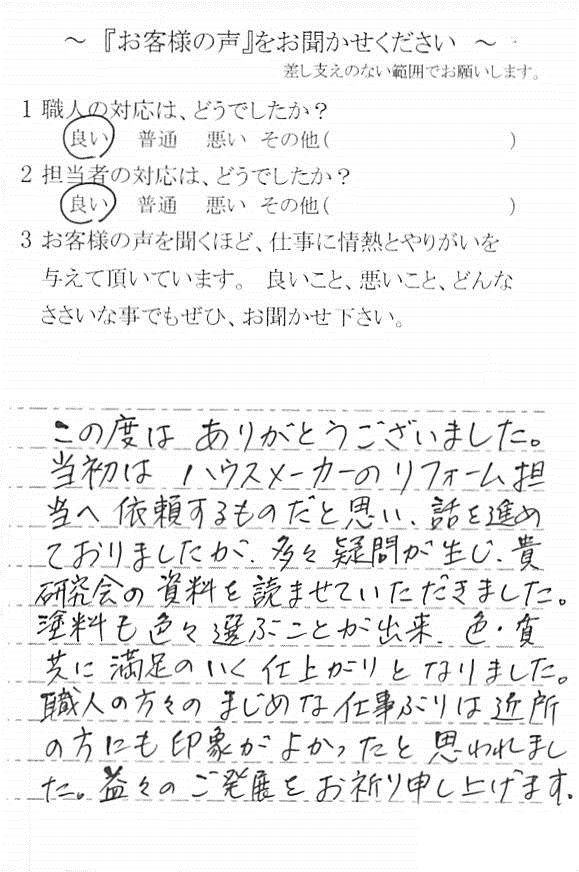 ～『お客様の声』をお聞かせください ～
差し支えのない範囲でお願いします。
1 職人の対応は、どうでしたか？
良い 普通 悪い その他( )
2 担当者の対応は、どうでしたか？
良い 普通 悪い その他( )
3 お客様の声を聞くほど、仕事に情熱とやりがいを
与えて頂いています。 良いこと、悪いこと、どんな
ささいな事でもぜひ、お聞かせ下さい。
この度は ありがとうございました。
当初は ハウスメーカーのリフォーム担
当へ依頼するものだと思い、話を進め
ておりましたが、多々疑問が生じ、貴
研究会の資料を読ませていただきました。
塗料も色々選ぶことが出来、色・質
共に満足のいく仕上がりとなりました。
職人の方々のまじめな仕事ぶりは近所
の方にも印象がよかったと思われまし
た。益々のご発展をお祈り申し上げます。